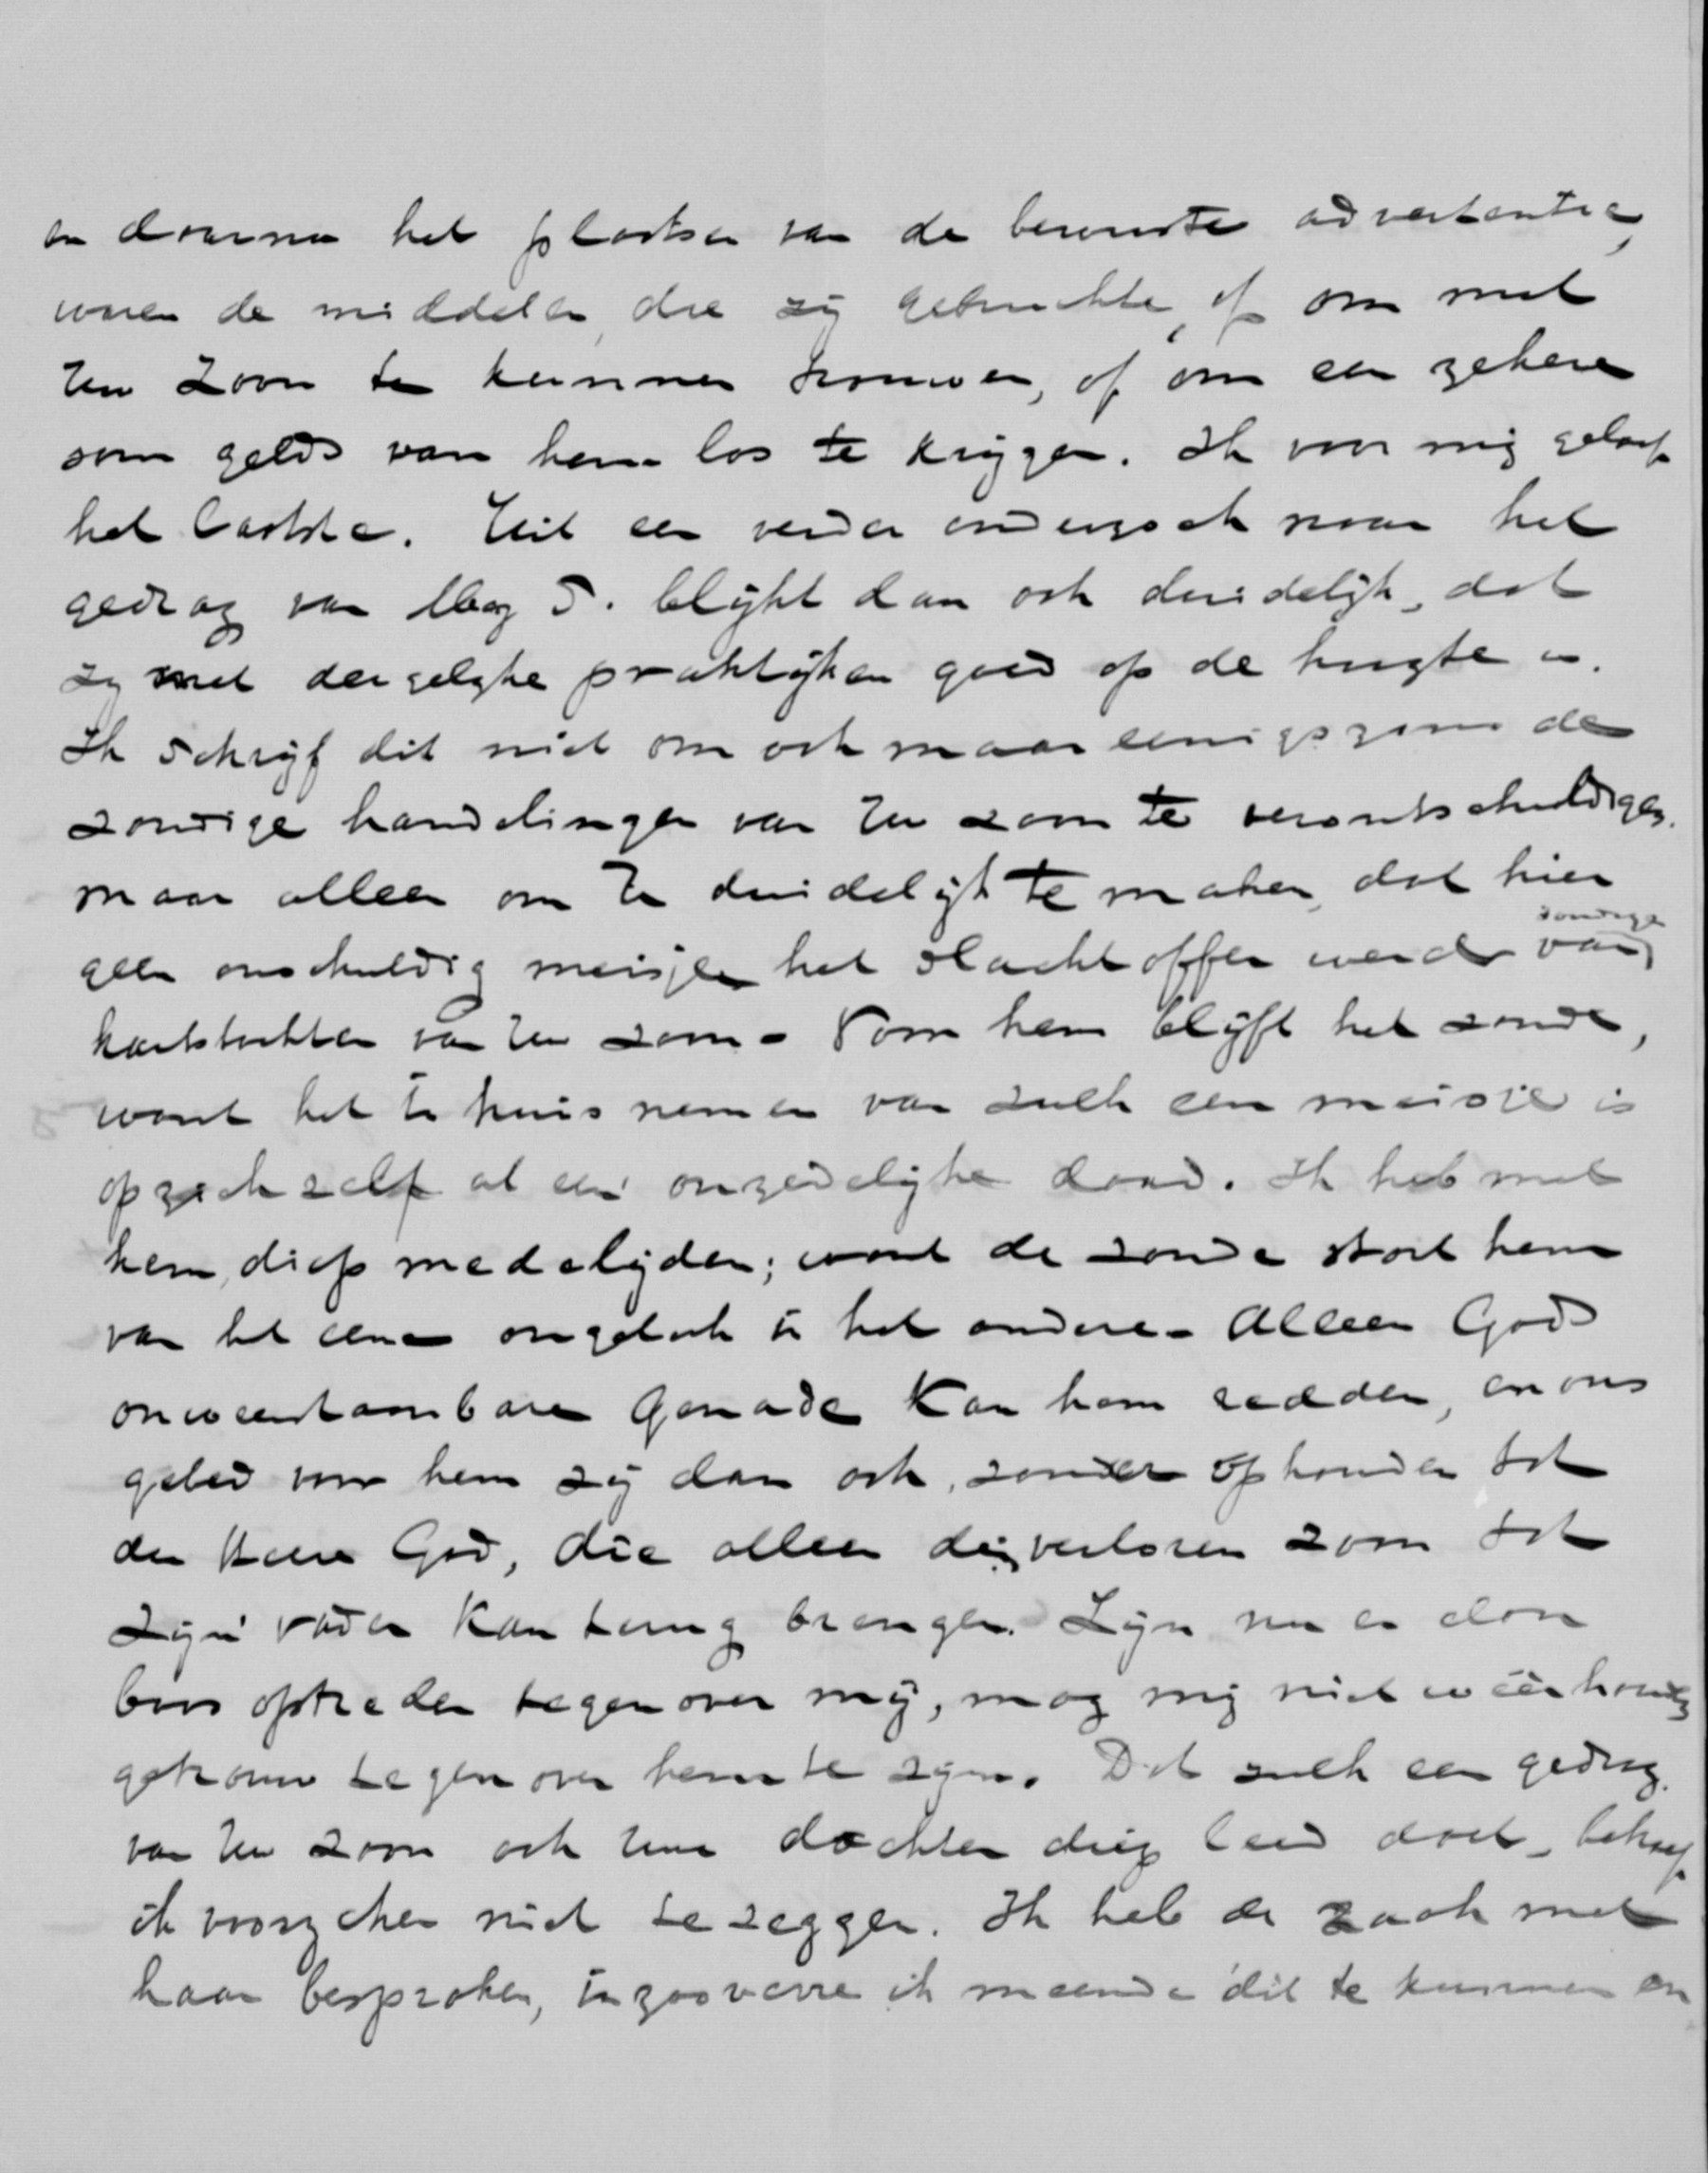 en daarna het plaatsen van de bewuste advertentie,
waren de middelen, die zij gebruikte, of om met
Uw zoon te kunnen trouwen, of om een zekere
som gelds van hem los te krijgen. Ik voor mij geloof
het laatste. Uit een verder onderzoek naar het
gedrag van Mej S. blijkt dan ook duidelijk, dat
zij met dergelijke praktijken goed op de hoogte is.
Ik schrijf dit niet om ook maar eenigszins de
zondige handelingen van Uw zoon te verontschuldigen.
maar alleen om U duidelijk te maken, dat hier
geen onschuldig meisje het slachtoffer werd van
zondige
hartstochten van Uw zoon. Voor hem blijft het zonde,
want het in huis nemen van zulk een meisje is
op zich zelf al een onzedelijke daad. Ik heb met
hem diep medelijden; want de zonde stort hem
van het eene ongeluk in het andere. Alleen God
onweerstaanbare genade kan hem redden, en ons
gebed voor hem zij dan ook, zonder ophouden tot
den Heere God, die alleen den verloren zoon tot
zijn vader kan terug brengen. Zijn nu en dan
boos optreden tegenover mij, mag mij niet wêerhouden
getrouw tegenover hem te zijn. Dat zulk een gedrag
van Uw zoon ook Uw dochter diep leed doet, behoef
ik voorzeker niet te zeggen. Ik heb de zaak met
haar besproken, inzooverre ik meende dit te kunnen en